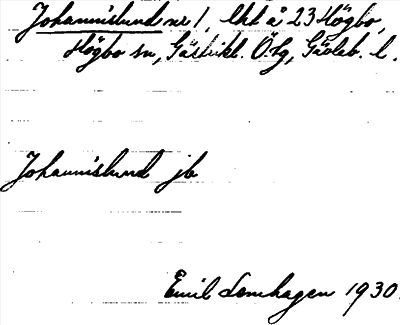 Johannislund nr 1, lht å 23 Högbo,
Högbo sn, Gästrikl. Ö. tg, Gävleb. l.
Johannislund jb
Emil Lemhagen 1930.